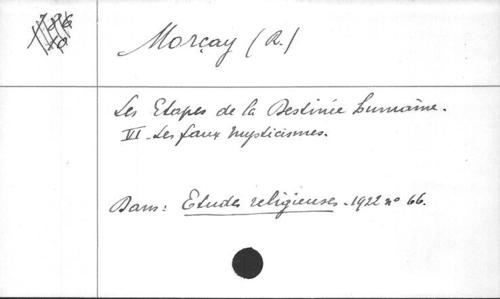 Morçay (R.)
Les Etapes de la Destinée humaine.
VI - Les faux mysticismes.
Dans: Etudes religieuses - 1922 nº 66.